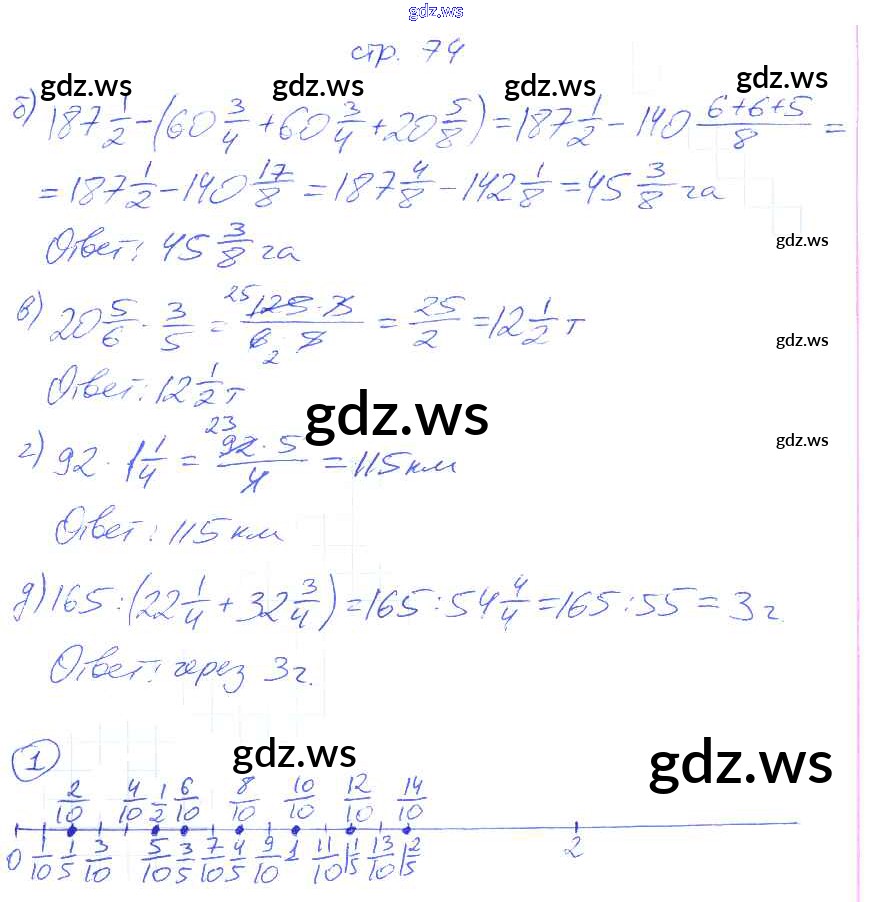 gdz.ws
стр. 74
gdz.ws gdz.ws gdz.ws gdz.ws
б) 187 1/2 - (60 3/4 + 60 3/4 + 20 5/8) = 187 1/2 - 140 (6+6+5)/8 =
= 187 1/2 - 140 17/8 = 187 4/8 - 142 1/8 = 45 3/8 га
gdz.ws
Ответ: 45 3/8 га
в) 20 5/6 · 3/5 = (25 125 · 3)/(6 2 · 5) = 25/2 = 12 1/2 т
gdz.ws
Ответ: 12 1/2 т
gdz.ws
gdz.ws
г) 92 · 1 1/4 = (23 92 · 5)/4 = 115 км
Ответ: 115 км
д) 165 : (22 1/4 + 32 3/4) = 165 : 54 4/4 = 165 : 55 = 3 ч.
Ответ: через 3 ч.
gdz.ws gdz.ws
1
2/10 4/10 1/2 6/10 8/10 10/10 12/10 14/10
0 1/10 1/5 3/10 5/10 3/5 7/10 4/5 9/10 1 11/10 1 1/5 13/10 1 2/5 2